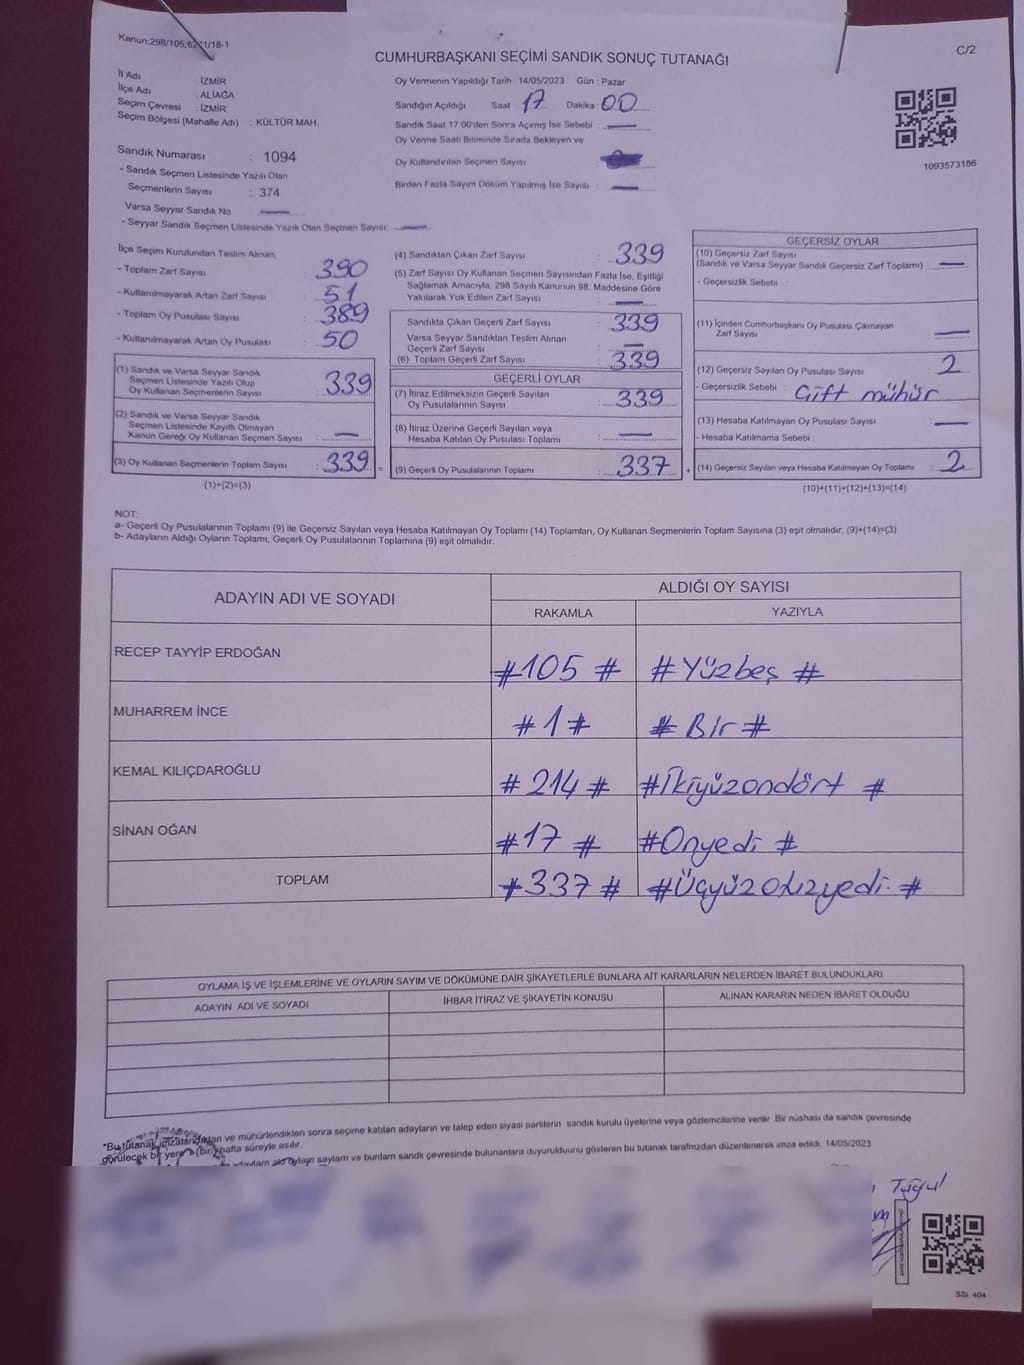 Kanun:298/105;62/1/18-1
C/2
CUMHURBAŞKANI SEÇİMİ SANDIK SONUÇ TUTANAĞI
İl Adı : İZMİR
İlçe Adı : ALİAĞA
Seçim Çevresi : İZMİR
Seçim Bölgesi (Mahalle Adı) : KÜLTÜR MAH.
Sandık Numarası : 1094
- Sandık Seçmen Listesinde Yazılı Olan
Seçmenlerin Sayısı : 374
Varsa Seyyar Sandık No
- Seyyar Sandık Seçmen Listesinde Yazılı Olan Seçmen Sayısı:
Oy Vermenin Yapıldığı Tarih : 14/05/2023 Gün : Pazar
Sandığın Açıldığı Saat 17 Dakika : 00
Sandık Saat 17:00'den Sonra Açımış İse Sebebi :
Oy Verme Saati Bitiminde Sırada Bekleyen ve
Oy Kullandırılan Seçmen Sayısı
Birden Fazla Sayım Döküm Yapılmış İse Sayısı :
1093573186
İlçe Seçim Kurulundan Teslim Alınan;
- Toplam Zarf Sayısı : 390
- Kullanılmayarak Artan Zarf Sayısı : 51
- Toplam Oy Pusulası Sayısı : 389
- Kullanılmayarak Artan Oy Pusulası : 50
(1) Sandık ve Varsa Seyyar Sandık
Seçmen Listesinde Yazılı Olup
Oy Kullanan Seçmenlerin Sayısı : 339
(2) Sandık ve Varsa Seyyar Sandık
Seçmen Listesinde Kayıtlı Olmayan
Kanun Gereği Oy Kullanan Seçmen Sayısı :
(3) Oy Kullanan Seçmenlerin Toplam Sayısı : 339 =
(1)+(2)=(3)
(4) Sandıktan Çıkan Zarf Sayısı : 339
(5) Zarf Sayısı Oy Kullanan Seçmen Sayısından Fazla İse, Eşitliği
Sağlamak Amacıyla; 298 Sayılı Kanunun 98. Maddesine Göre
Yakılarak Yok Edilen Zarf Sayısı :
Sandıkta Çıkan Geçerli Zarf Sayısı : 339
Varsa Seyyar Sandıktan Teslim Alınan
Geçerli Zarf Sayısı :
(6) Toplam Geçerli Zarf Sayısı : 339
GEÇERLİ OYLAR
(7) İtiraz Edilmeksizin Geçerli Sayılan
Oy Pusulalarının Sayısı : 339
(8) İtiraz Üzerine Geçerli Sayılan veya
Hesaba Katılan Oy Pusulası Toplamı :
(9) Geçerli Oy Pusulalarının Toplamı : 337 +
GEÇERSİZ OYLAR
(10) Geçersiz Zarf Sayısı
(Sandık ve Varsa Seyyar Sandık Geçersiz Zarf Toplamı) :
- Geçersizlik Sebebi :
(11) İçinden Cumhurbaşkanı Oy Pusulası Çıkmayan
Zarf Sayısı :
(12) Geçersiz Sayılan Oy Pusulası Sayısı : 2
- Geçersizlik Sebebi : Çift mühür
(13) Hesaba Katılmayan Oy Pusulası Sayısı :
- Hesaba Katılmama Sebebi :
(14) Geçersiz Sayılan veya Hesaba Katılmayan Oy Toplamı : 2
(10)+(11)+(12)+(13)=(14)
NOT:
a- Geçerli Oy Pusulalarının Toplamı (9) ile Geçersiz Sayılan veya Hesaba Katılmayan Oy Toplamı (14) Toplamları, Oy Kullanan Seçmenlerin Toplam Sayısına (3) eşit olmalıdır. (9)+(14)=(3)
b- Adayların Aldığı Oyların Toplamı, Geçerli Oy Pusulalarının Toplamına (9) eşit olmalıdır.
ADAYIN ADI VE SOYADI ALDIĞI OY SAYISI
RAKAMLA YAZIYLA
RECEP TAYYİP ERDOĞAN #105 # # Yüzbeş #
MUHARREM İNCE # 1 # # Bir #
KEMAL KILIÇDAROĞLU # 214 # #İkiyüzondört #
SİNAN OĞAN #17 # #Onyedi #
TOPLAM #337 # #Üçyüzotuzyedi. #
OYLAMA İŞ VE İŞLEMLERİNE VE OYLARIN SAYIM VE DÖKÜMÜNE DAİR ŞİKAYETLERLE BUNLARA AİT KARARLARIN NELERDEN İBARET BULUNDUKLARI
ADAYIN ADI VE SOYADI İHBAR İTİRAZ VE ŞİKAYETİN KONUSU ALINAN KARARIN NEDEN İBARET OLDUĞU
*Bu tutanak imzalandıktan ve mühürlendikten sonra seçime katılan adayların ve talep eden siyasi partilerin sandık kurulu üyelerine veya gözlemcilerine verilir. Bir nüshası da sandık çevresinde
görülecek bir yere (bir) hafta süreyle asılır.
adayların aldı oyların sayılarını ve bunların sandık çevresinde bulunanlara duyurulduğunu gösteren bu tutanak tarafımızdan düzenlenerek imza edildi. 14/05/2023
SSI 404